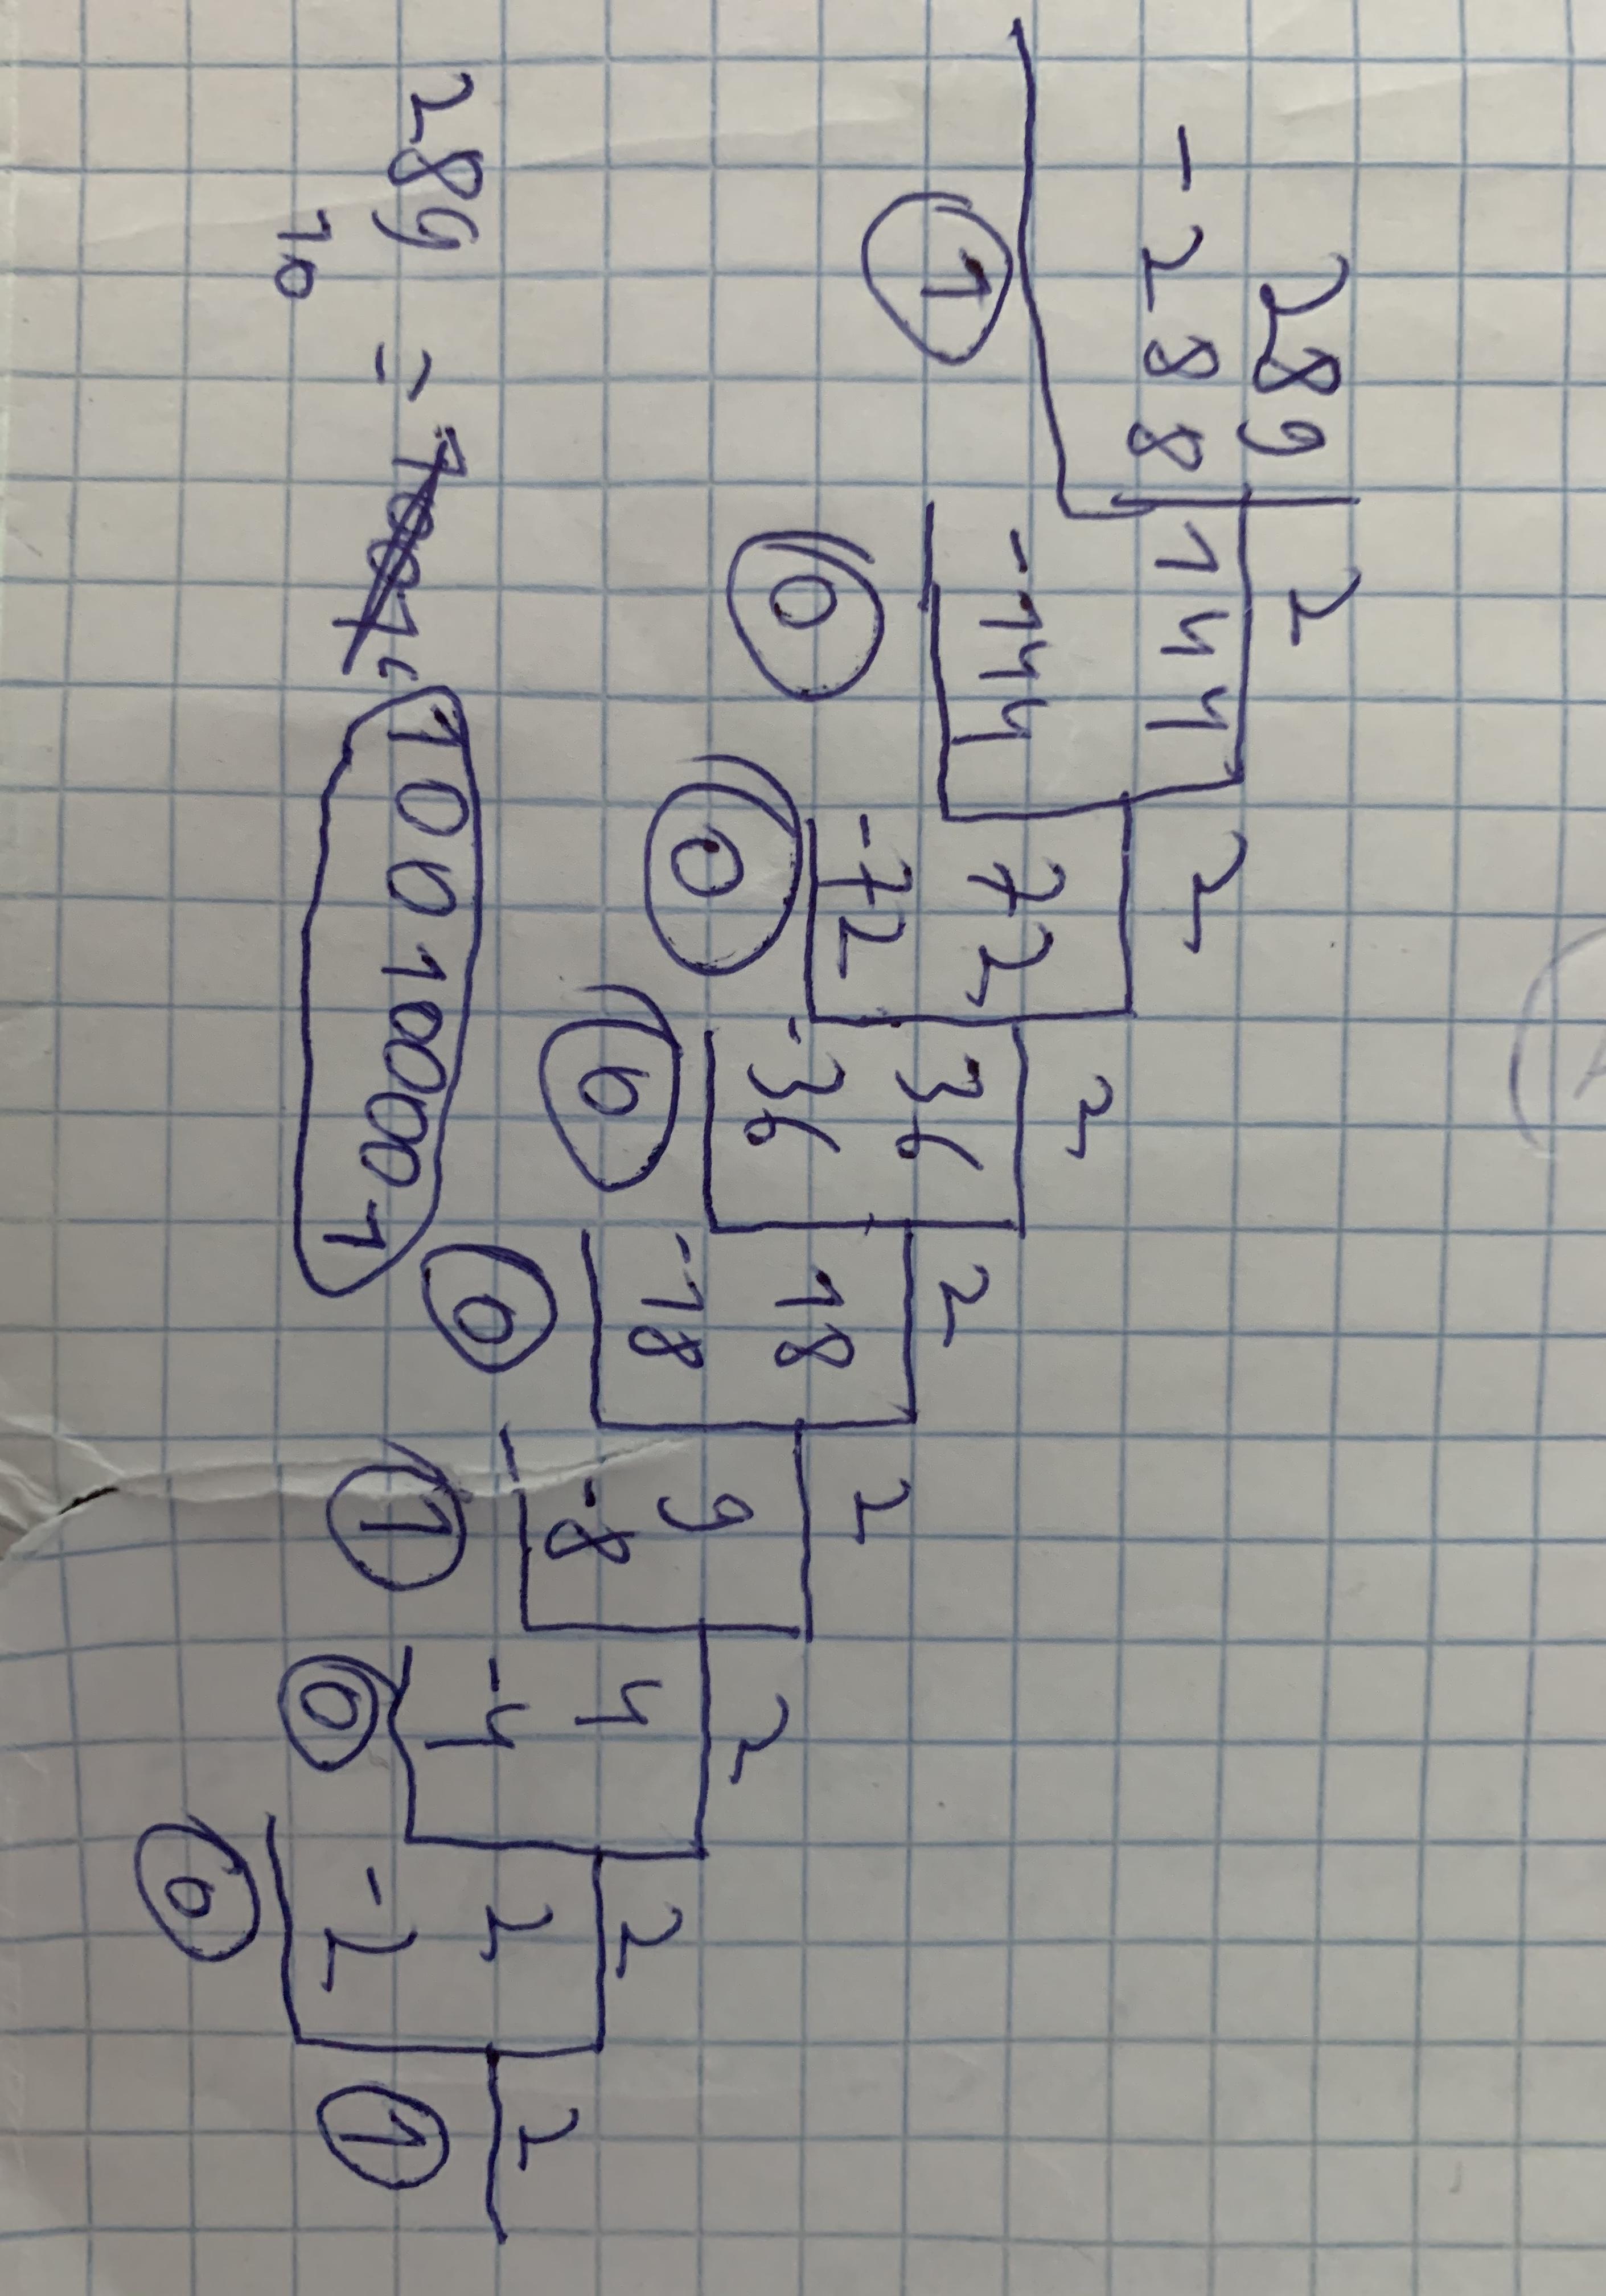 289 2
-288 144 2
1 -144 72 2
0 -72 36 2
0 -36 18 2
0 -18 9 2
0 -8 4 2
1 -4 2 2
0 -2 1
0
289 = 100100001
10